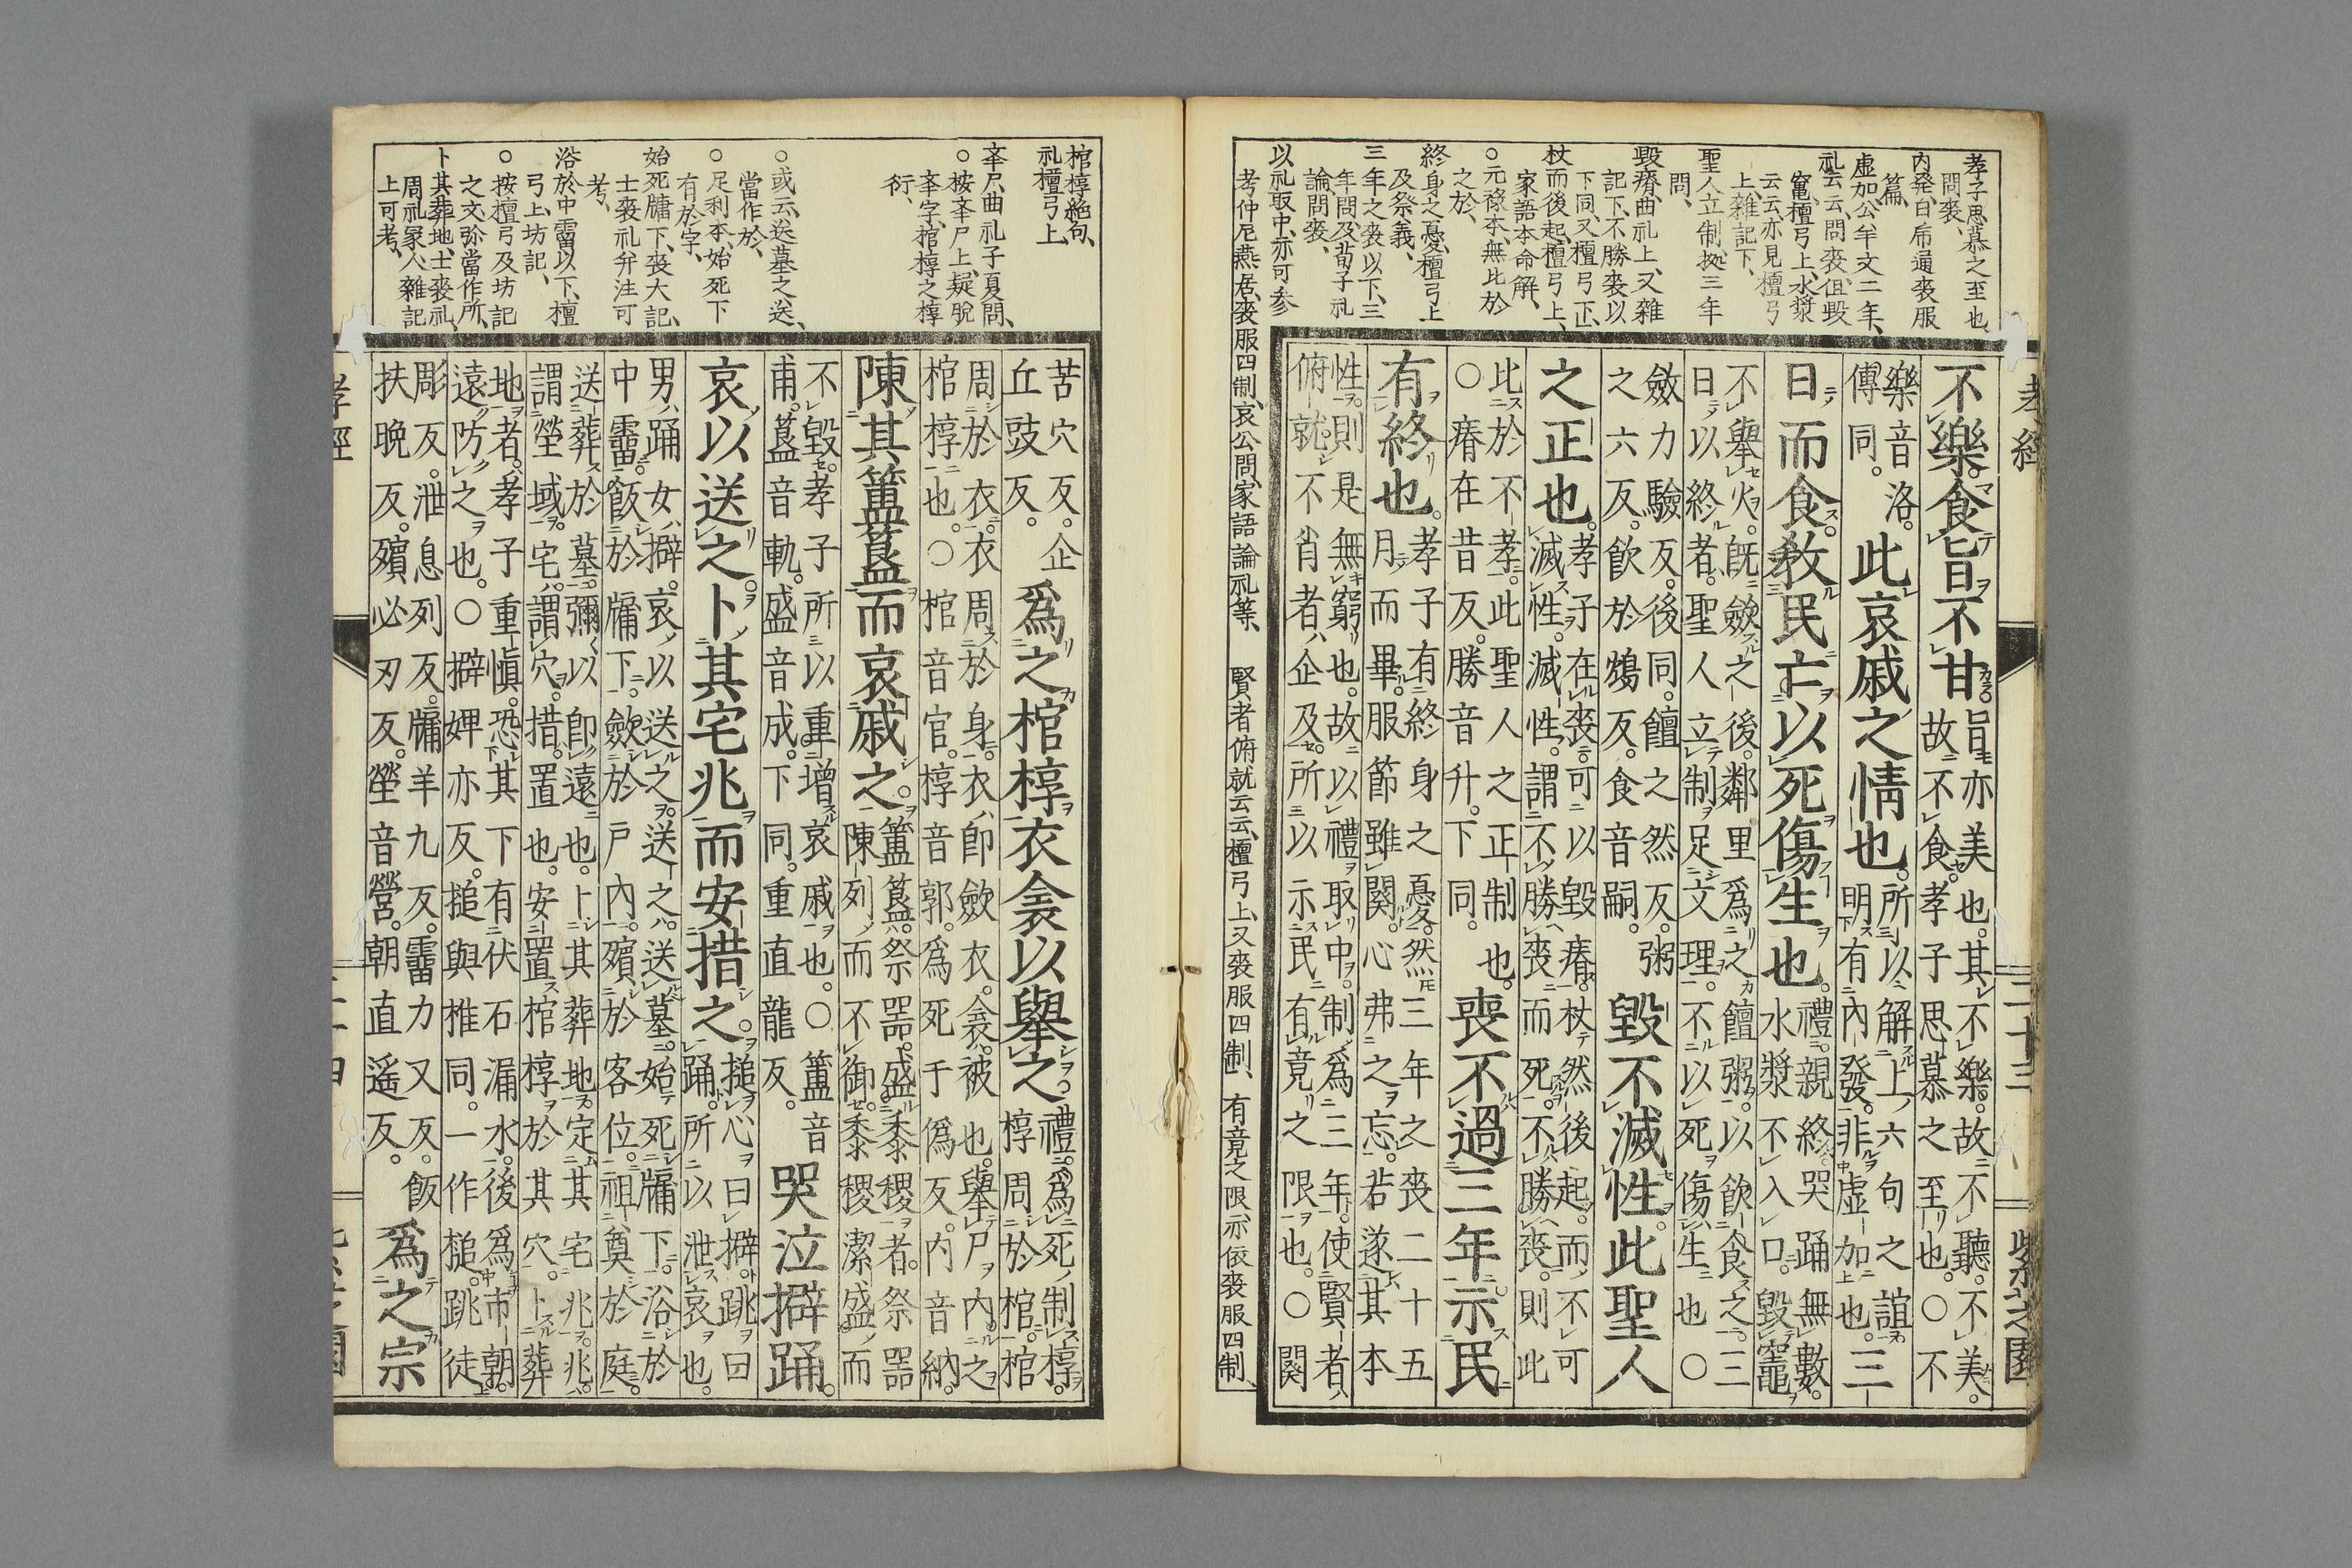 孝經
二十三
紫芝園
孝子思慕之至也
問喪、
内発、白虎通喪服
篇、
虚加、公羊文二年、
礼云云、問喪、但毀
竃、檀弓上、水漿
云云、亦見檀弓
上、雑記下、
聖人立制、拠三年
問、
毀瘠、曲礼上、又雑
記下、不勝喪以
下同、又檀弓下、正
杖而後起、檀弓上、
家語本命解、
○元禄本、無比於
之於、
終身之憂、檀弓上
及祭義、
三年之喪以下、三
年問及荀子礼
論、問喪、
以礼取中、亦可参
考仲尼燕居、喪服四制、哀公問、家語論礼等、 賢者俯就云云、檀弓上、又喪服四制、 有竟之限、亦依喪服四制、
不樂。食旨不甘。旨亦美也。其不樂。故不聽。不美。
故不食。孝子思慕之至也。○不
樂音洛。
傳同。此哀戚之情也。所以解上六句之誼
明有内發。非虚加也。三
日而食。教民亡以死傷生也。禮。親終哭踊無數。
水漿不入口。毀竈
不擧火。既斂之後。鄰里爲之饘粥。以飲食之。三
日以終者。聖人立制足文理。不以死傷生也○
斂力驗反。後同。饘之然反。粥
之六反。飲於鴆反。食音嗣。毀不滅性。此聖人
之正也。孝子在喪。可以毀瘠。杖然後起。而不可
滅性。滅性。謂不勝喪而死。不勝喪。則此
比於不孝。此聖人之正制也。
○瘠在昔反。勝音升。下同。喪不過三年示民
有終也。孝子有終身之憂。然三年之喪二十五
月而畢。服節雖闋。心弗之忘。若遂其本
性。則是無窮也。故以禮取中。制爲三年。使賢者
俯就。不肖者企及。所以示民有竟之限也。○闋
棺椁絶句、
礼檀弓上、
夲尸、曲礼子夏問、
○按夲尸上、疑脱
夲字、棺椁之椁
衍、
○或云、送墓之送、
當作於、
○足利本、始死下
有於字、
始死牖下、喪大記、
士喪礼并注可
考、
浴於中霤以下、檀
弓上、坊記、
○按檀弓及坊記
之文弥當作所、
卜其葬地、士喪礼、
周礼冢人、雜記
上可考、
苦穴反。企
丘豉反。爲之棺椁衣衾以擧之。禮。爲死制椁。
椁周於棺。棺
周於衣。衣周於身。衣卽斂衣。衾。被也。擧尸内之
棺椁也。○棺音官。椁音郭。爲死于僞反。内音納。
陳其簠簋而哀戚之。簠簋。祭器。盛黍稷者。祭器
陳列而不御。黍稷潔盛。而
不毀。孝子所以重增哀戚也。○簠音
甫。簋音軌。盛音成。下同。重直龍反。哭泣擗踊。
哀以送之。卜其宅兆而安措之。搥心曰擗。跳曰
踊。所以泄哀也。
男踊女擗。哀以送之。送之。送墓。始死牖下。浴於
中霤。飯於牖下。斂於戸内。殯於客位。祖奠於庭。
送葬於墓。彌以卽遠也。卜其葬地。定其宅兆。兆。
謂塋域。宅。謂穴。措。置也。安置棺椁於其穴。卜葬
地者。孝子重愼。恐其下有伏石漏水。後爲市朝。
遠防之也。○擗婢亦反。搥與椎同。一作槌。跳徒
彫反。泄息列反。牖羊九反。霤力又反。飯
扶晩反。殯必刃反。塋音營。朝直遥反。爲之宗
孝經